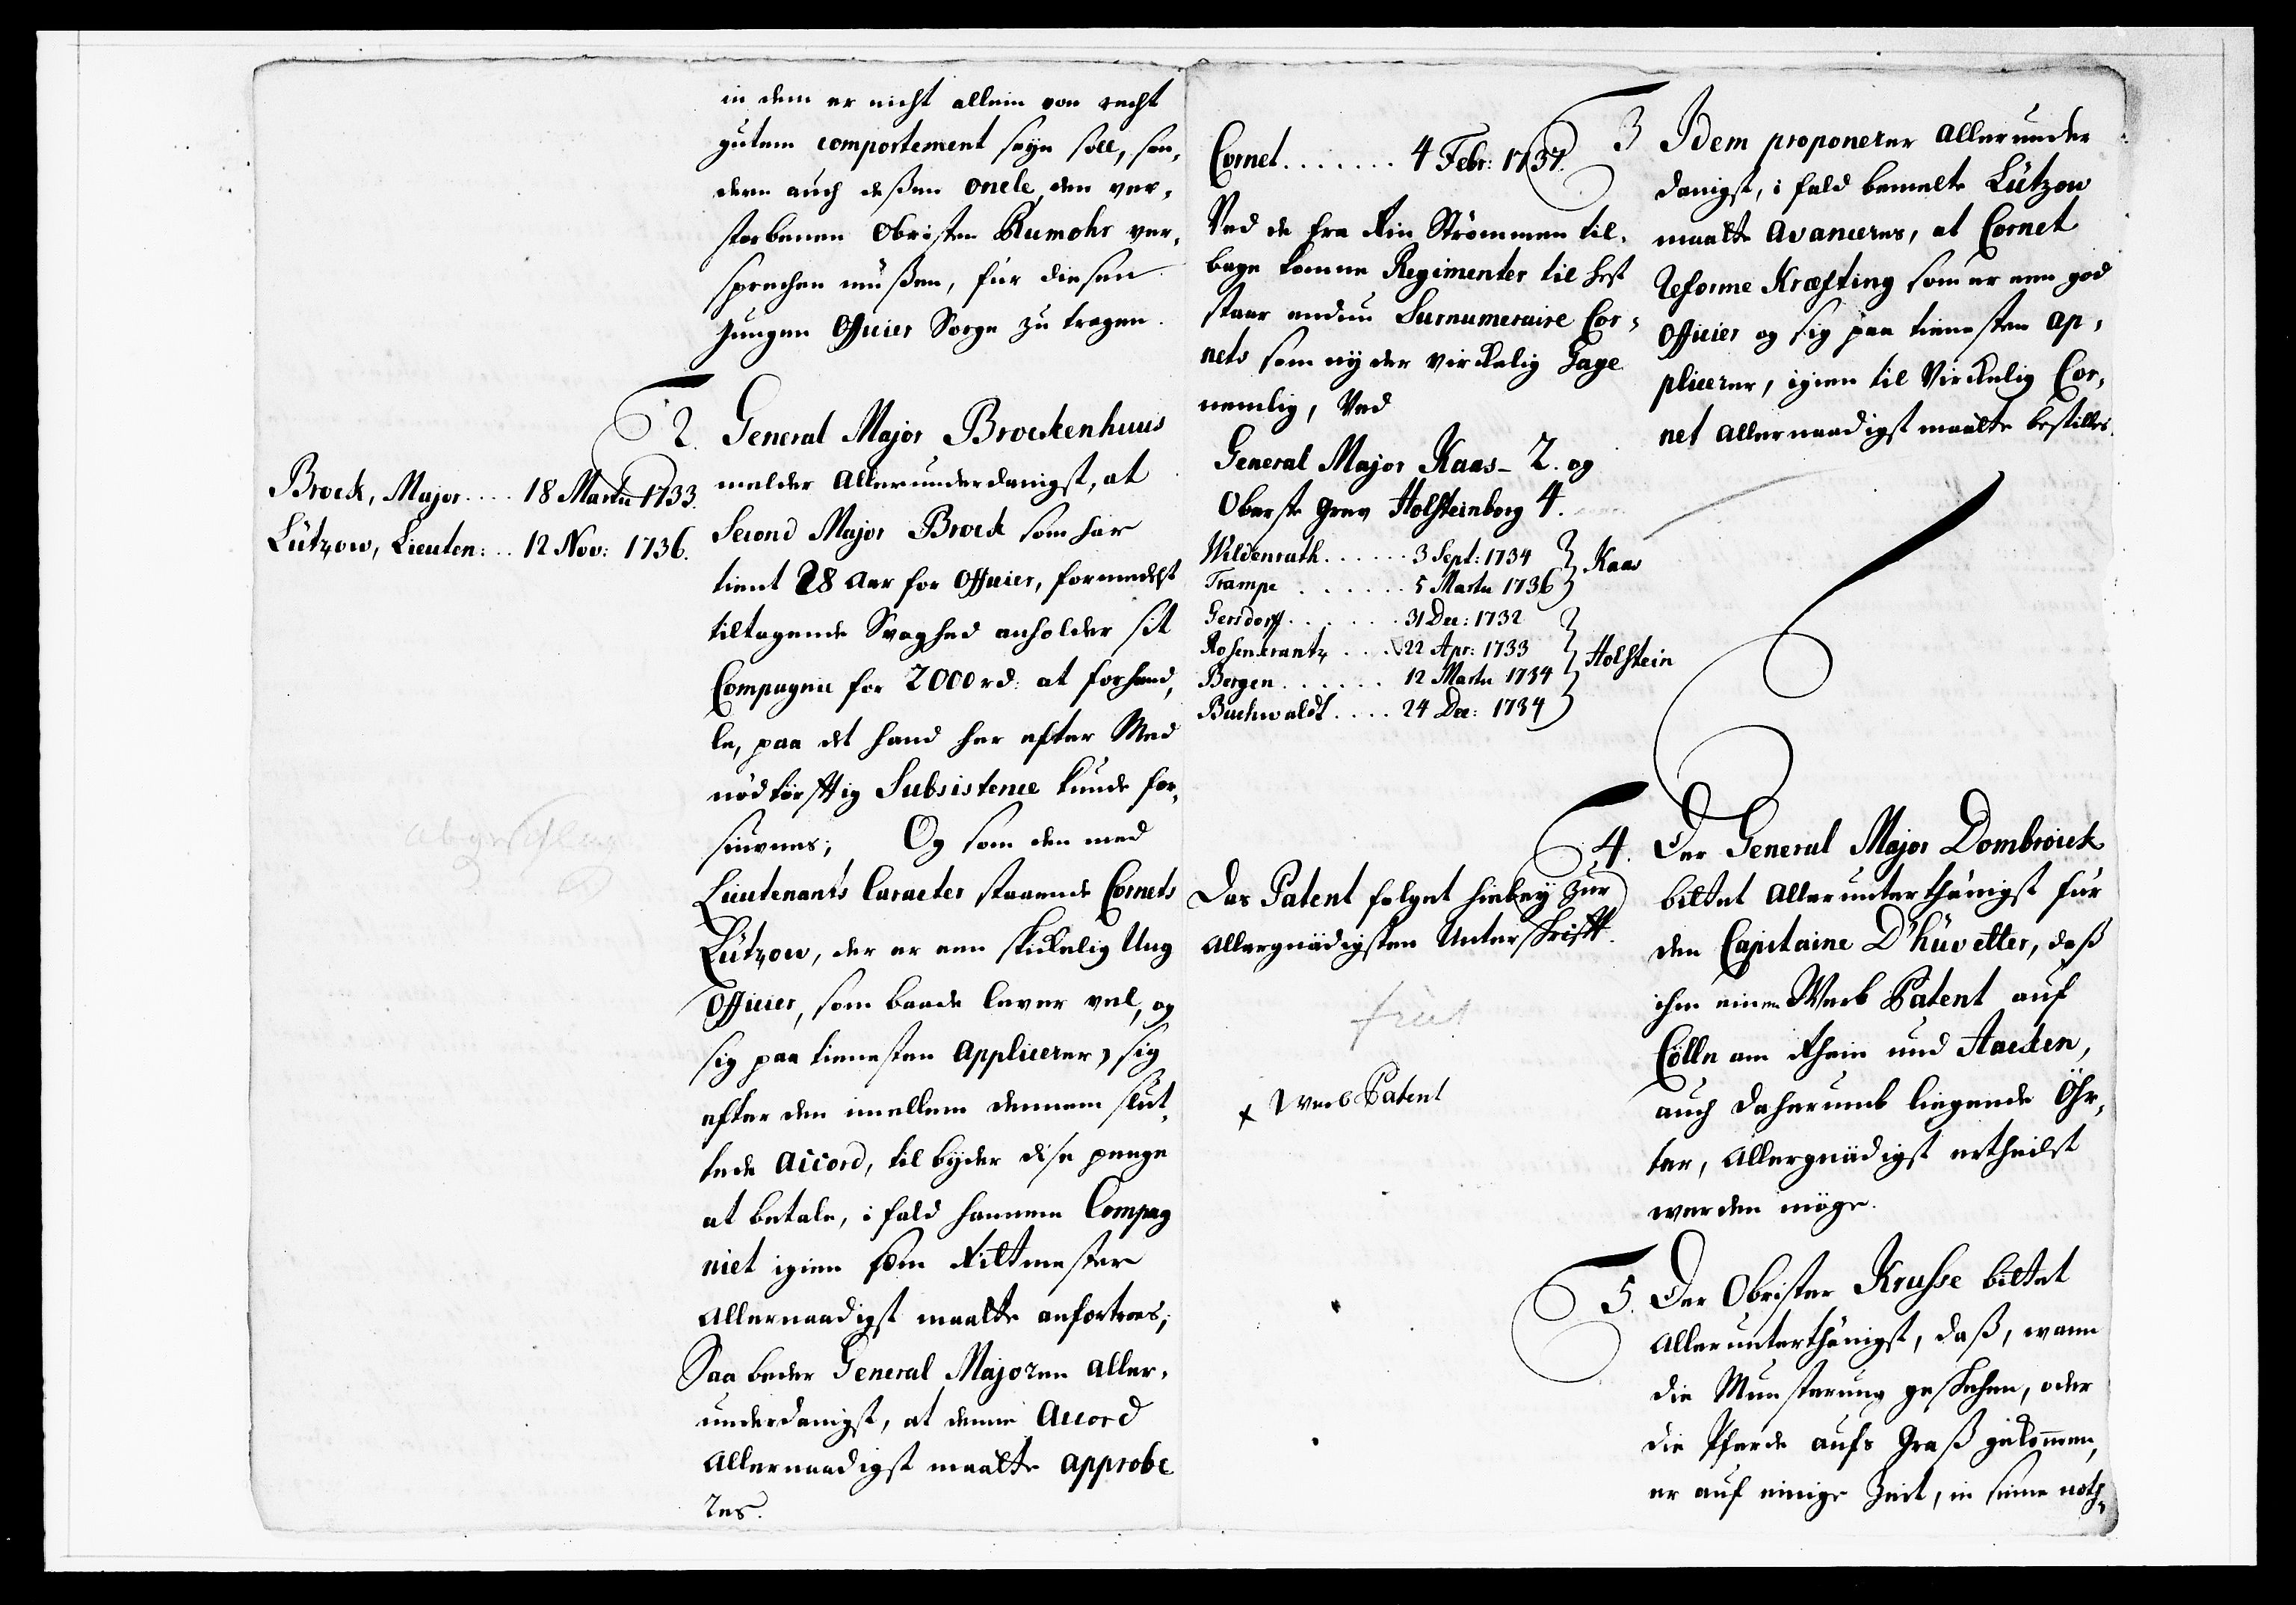 in dem er nicht allein von recht
gutem comportement seyn soll, son,
dern auch deßen oncle, den ver,
storbenen Obristen Rumohr ver,
sprechen müßen, für diesen
jungen Officier Sorge zu tragen.
2. General Major Brockenhuus
melder allerunderdanigst, at
Brock, Major .... 18 Martii 1733.
Lützow, Lieuten: .. 12 Nov: 1736.
Second Major Brock som har
tient 28 Aar for Officier, formedelst
tiltagende Svaghed anholder sit
Compagnie for 2000 rd: at forhand,
le, paa det hand her efter Med
nødtørfftig Subsistence kunde for,
siunes; Og som den med
Lieutenants Caracter staaende Cornet
Lützow, der er een skikkelig Ung
Officier, som baade lever vel, og
sig paa tienesten applicerer, sig
efter den imellem dennem slut,
tede Accord, tilbyder disse penge
at betale, i fald hannem Compag
niet igien som Rittmester
allernaadigst maatte anfortroes;
Saa beder General Majoren aller,
underdanigst, at denne Accord
allernaadigst maatte approbe
res.
Cornet ....... 4 Febr: 1737.
Ved de fra Rin Strömmen til,
bage komne Regimenter til Hest
staar endnu Surnumeraire Cor,
nets som nyder virkelig Gage
nemlig, Ved
General Major Kaas - 2. og
Oberste Grev Holsteinborg 4.
Wildenrath ...... 3 Sept: 1734 } Kaas
Trampe ...... 5 Martii 1736 }
Gersdorff ...... 31 Dec: 1732
Rosenkrantz .... 22 Apr: 1733 } Holstein
Bergen ...... 12 Martii 1734
Buchwaldt .... 24 Dec: 1734
Das Patent folget hiebey zur
allergnädigsten Unterschrifft.
x Werb Patent
3 Idem proponerer allerunder
danigst, i fald bemelte Lützow
maatte avanceres, at Cornet
Reforme Kræfting som er een god
Officier og sig paa tienesten ap,
plicerer, igien til Virkelig Cor,
net allernaadigst maatte bestilles.
4. Der General Major Dombroick
bittet allerunterthänigst für
den Capitaine D'hüvetter, daß
ihm einen Werb Patent auf
Cölln am Rhein und Aacken,
auch daherumb liegende Öhr,
ter, allergnädigst ertheilt
werden möge.
5. Der Obrister Krusse bittet
allerunterthänigst, daß, wann
die Munsterung geschehen, oder
die Pferde aufs Graß gekommen,
er auf einige Zeit, in seine noth,